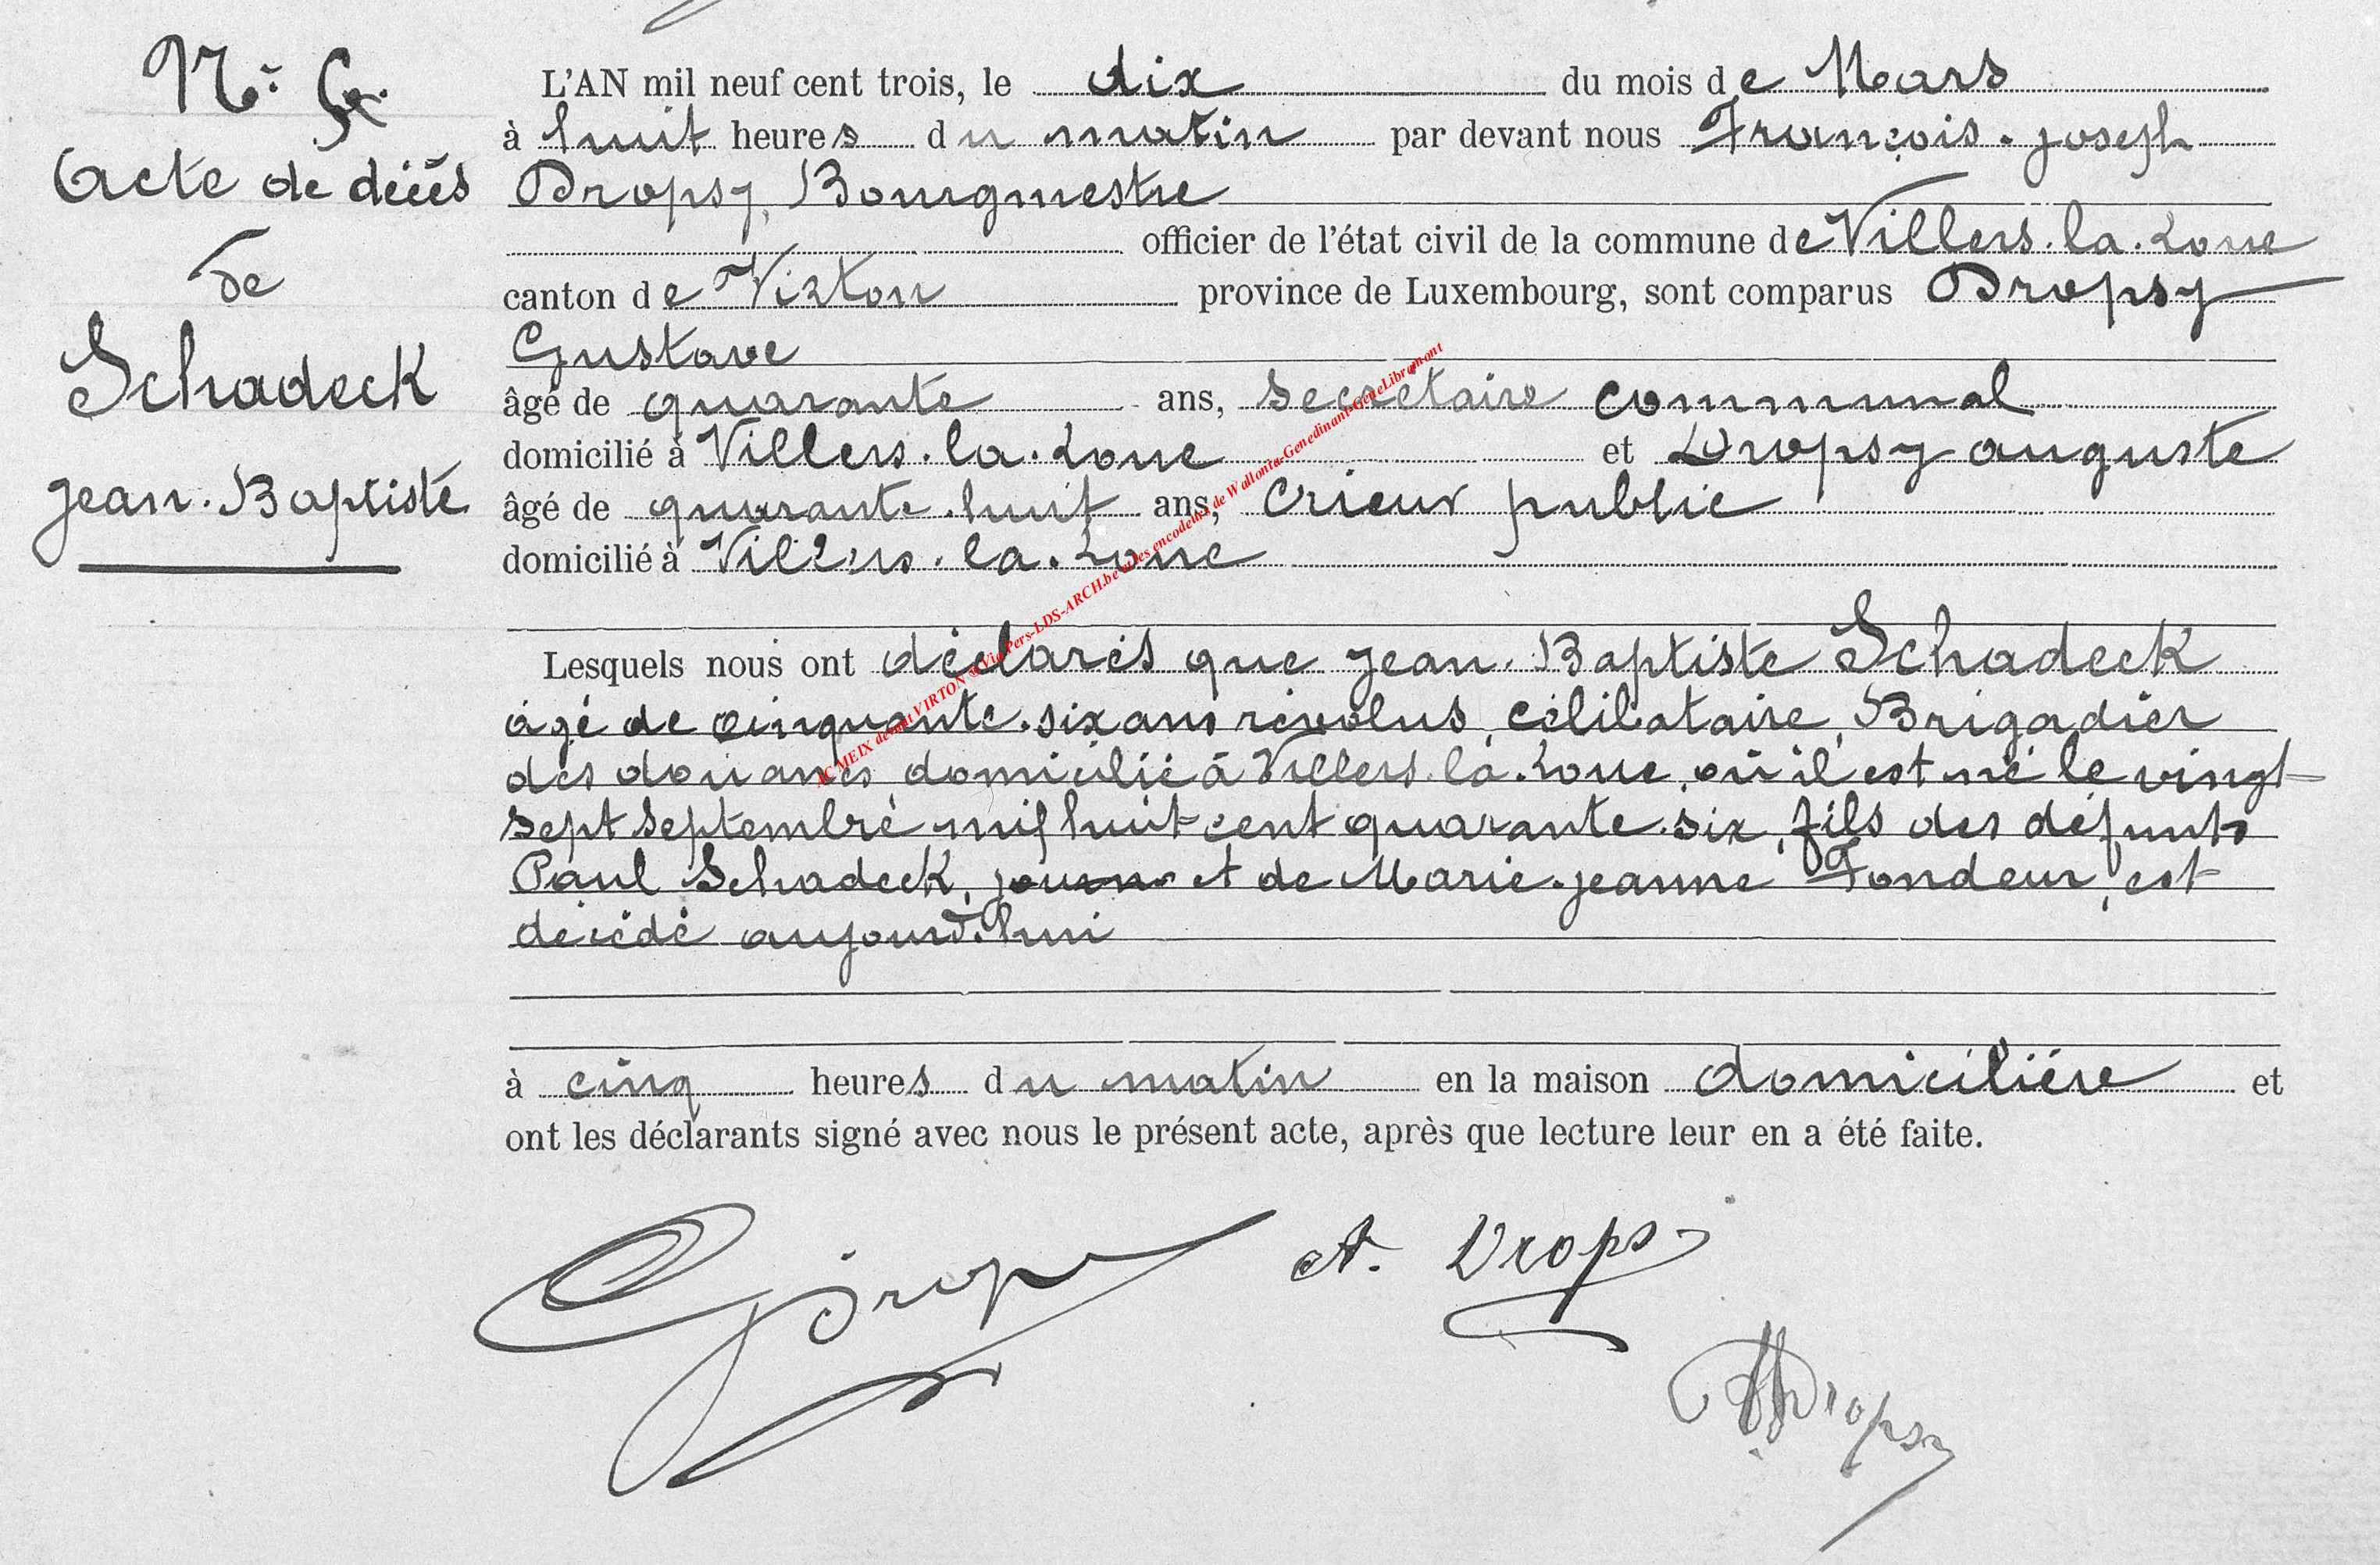 Acte de décès
de
Schadeck
Jean-Baptiste
L'AN mil neuf cent trois, le dix du mois de Mars
à huit heures du matin par devant nous François-Joseph
Dropsy, Bourgmestre
officier de l'état civil de la commune de Villers-la-Loue
canton de Virton province de Luxembourg, sont comparus Dropsy
Gustave
âgé de quarante ans, secrétaire communal
domicilié à Villers-la-Loue et Dropsy auguste
âgé de quarante-huit ans, crieur public
domicilié à Villers-la-Loue
Lesquels nous ont déclarés que Jean-Baptiste Schadeck
âgé de cinquante-six ans révolus, célibataire, Brigadier
des douanes, domicilié à Villers-la-Loue, où il est né le vingt
sept septembre mil huit cent quarante-six, fils des défunts
Paul Schadeck, journ et de Marie-Jeanne Fondeur, est
décédé aujourd'hui
à cinq heures du matin en la maison domicilière et
ont les déclarants signé avec nous le présent acte, après que lecture leur en a été faite.
A. Dropsy
Dropsy